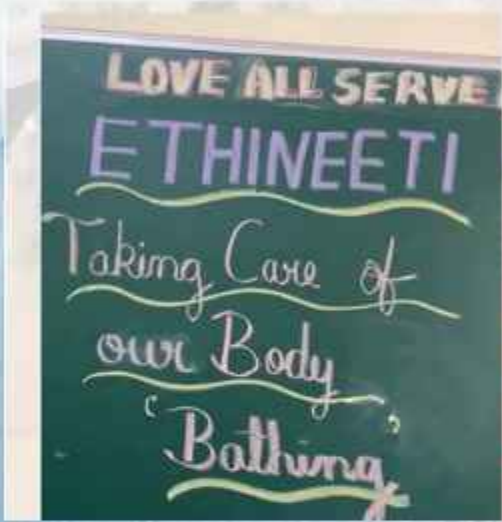 LOVE ALL SERVE
ETHINEETI
Taking Care of
our Body
'Bathing'